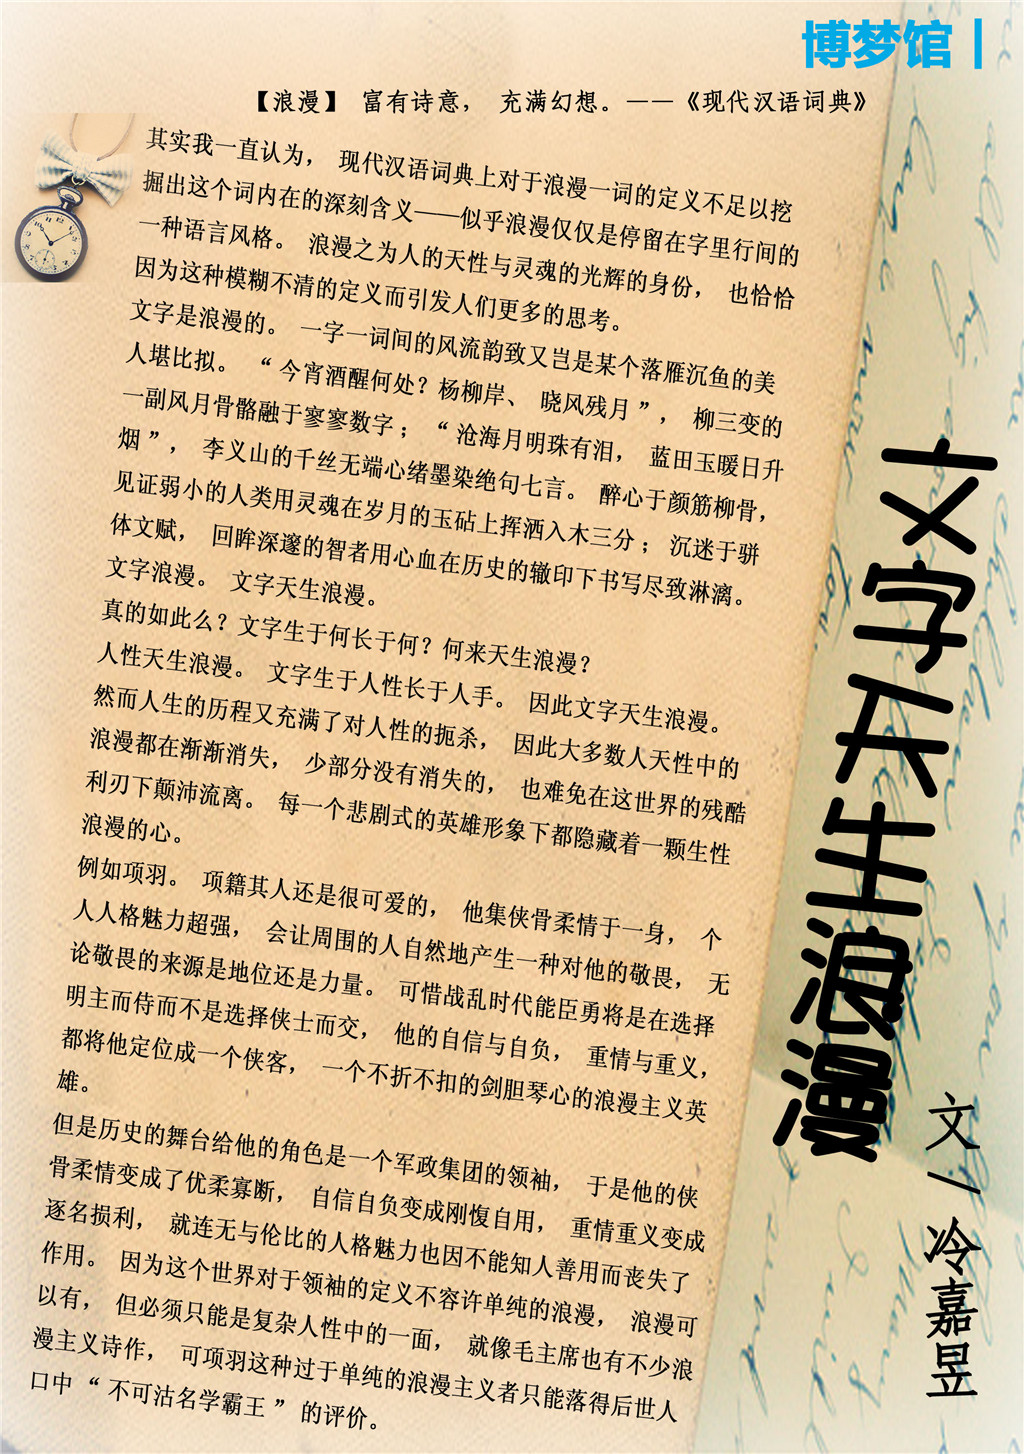 博梦馆|
【浪漫】 富有诗意， 充满幻想。——《现代汉语词典》
其实我一直认为， 现代汉语词典上对于浪漫一词的定义不足以挖
掘出这个词内在的深刻含义——似乎浪漫仅仅是停留在字里行间的
一种语言风格。 浪漫之为人的天性与灵魂的光辉的身份， 也恰恰
因为这种模糊不清的定义而引发人们更多的思考。
文字是浪漫的。 一字一词间的风流韵致又岂是某个落雁沉鱼的美
人堪比拟。 “今宵酒醒何处？杨柳岸、 晓风残月”， 柳三变的
一副风月骨骼融于寥寥数字；“沧海月明珠有泪， 蓝田玉暖日升
烟”， 李义山的千丝无端心绪墨染绝句七言。 醉心于颜筋柳骨，
见证弱小的人类用灵魂在岁月的玉砧上挥洒入木三分；沉迷于骈
体文赋， 回眸深邃的智者用心血在历史的辙印下书写尽致淋漓。
文字浪漫。 文字天生浪漫。
真的如此么？文字生于何长于何？何来天生浪漫？
人性天生浪漫。 文字生于人性长于人手。 因此文字天生浪漫。
然而人生的历程又充满了对人性的扼杀， 因此大多数人天性中的
浪漫都在渐渐消失， 少部分没有消失的， 也难免在这世界的残酷
利刃下颠沛流离。 每一个悲剧式的英雄形象下都隐藏着一颗生性
浪漫的心。
例如项羽。 项籍其人还是很可爱的， 他集侠骨柔情于一身， 个
人人格魅力超强， 会让周围的人自然地产生一种对他的敬畏， 无
论敬畏的来源是地位还是力量。 可惜战乱时代能臣勇将是在选择
明主而侍而不是选择侠士而交， 他的自信与自负， 重情与重义，
都将他定位成一个侠客， 一个不折不扣的剑胆琴心的浪漫主义英
雄。
但是历史的舞台给他的角色是一个军政集团的领袖， 于是他的侠
骨柔情变成了优柔寡断， 自信自负变成刚愎自用， 重情重义变成
逐名损利， 就连无与伦比的人格魅力也因不能知人善用而丧失了
作用。 因为这个世界对于领袖的定义不容许单纯的浪漫， 浪漫可
以有， 但必须只能是复杂人性中的一面， 就像毛主席也有不少浪
漫主义诗作， 可项羽这种过于单纯的浪漫主义者只能落得后世人
口中“不可沽名学霸王”的评价。
文字天生浪漫
文/冷嘉昱